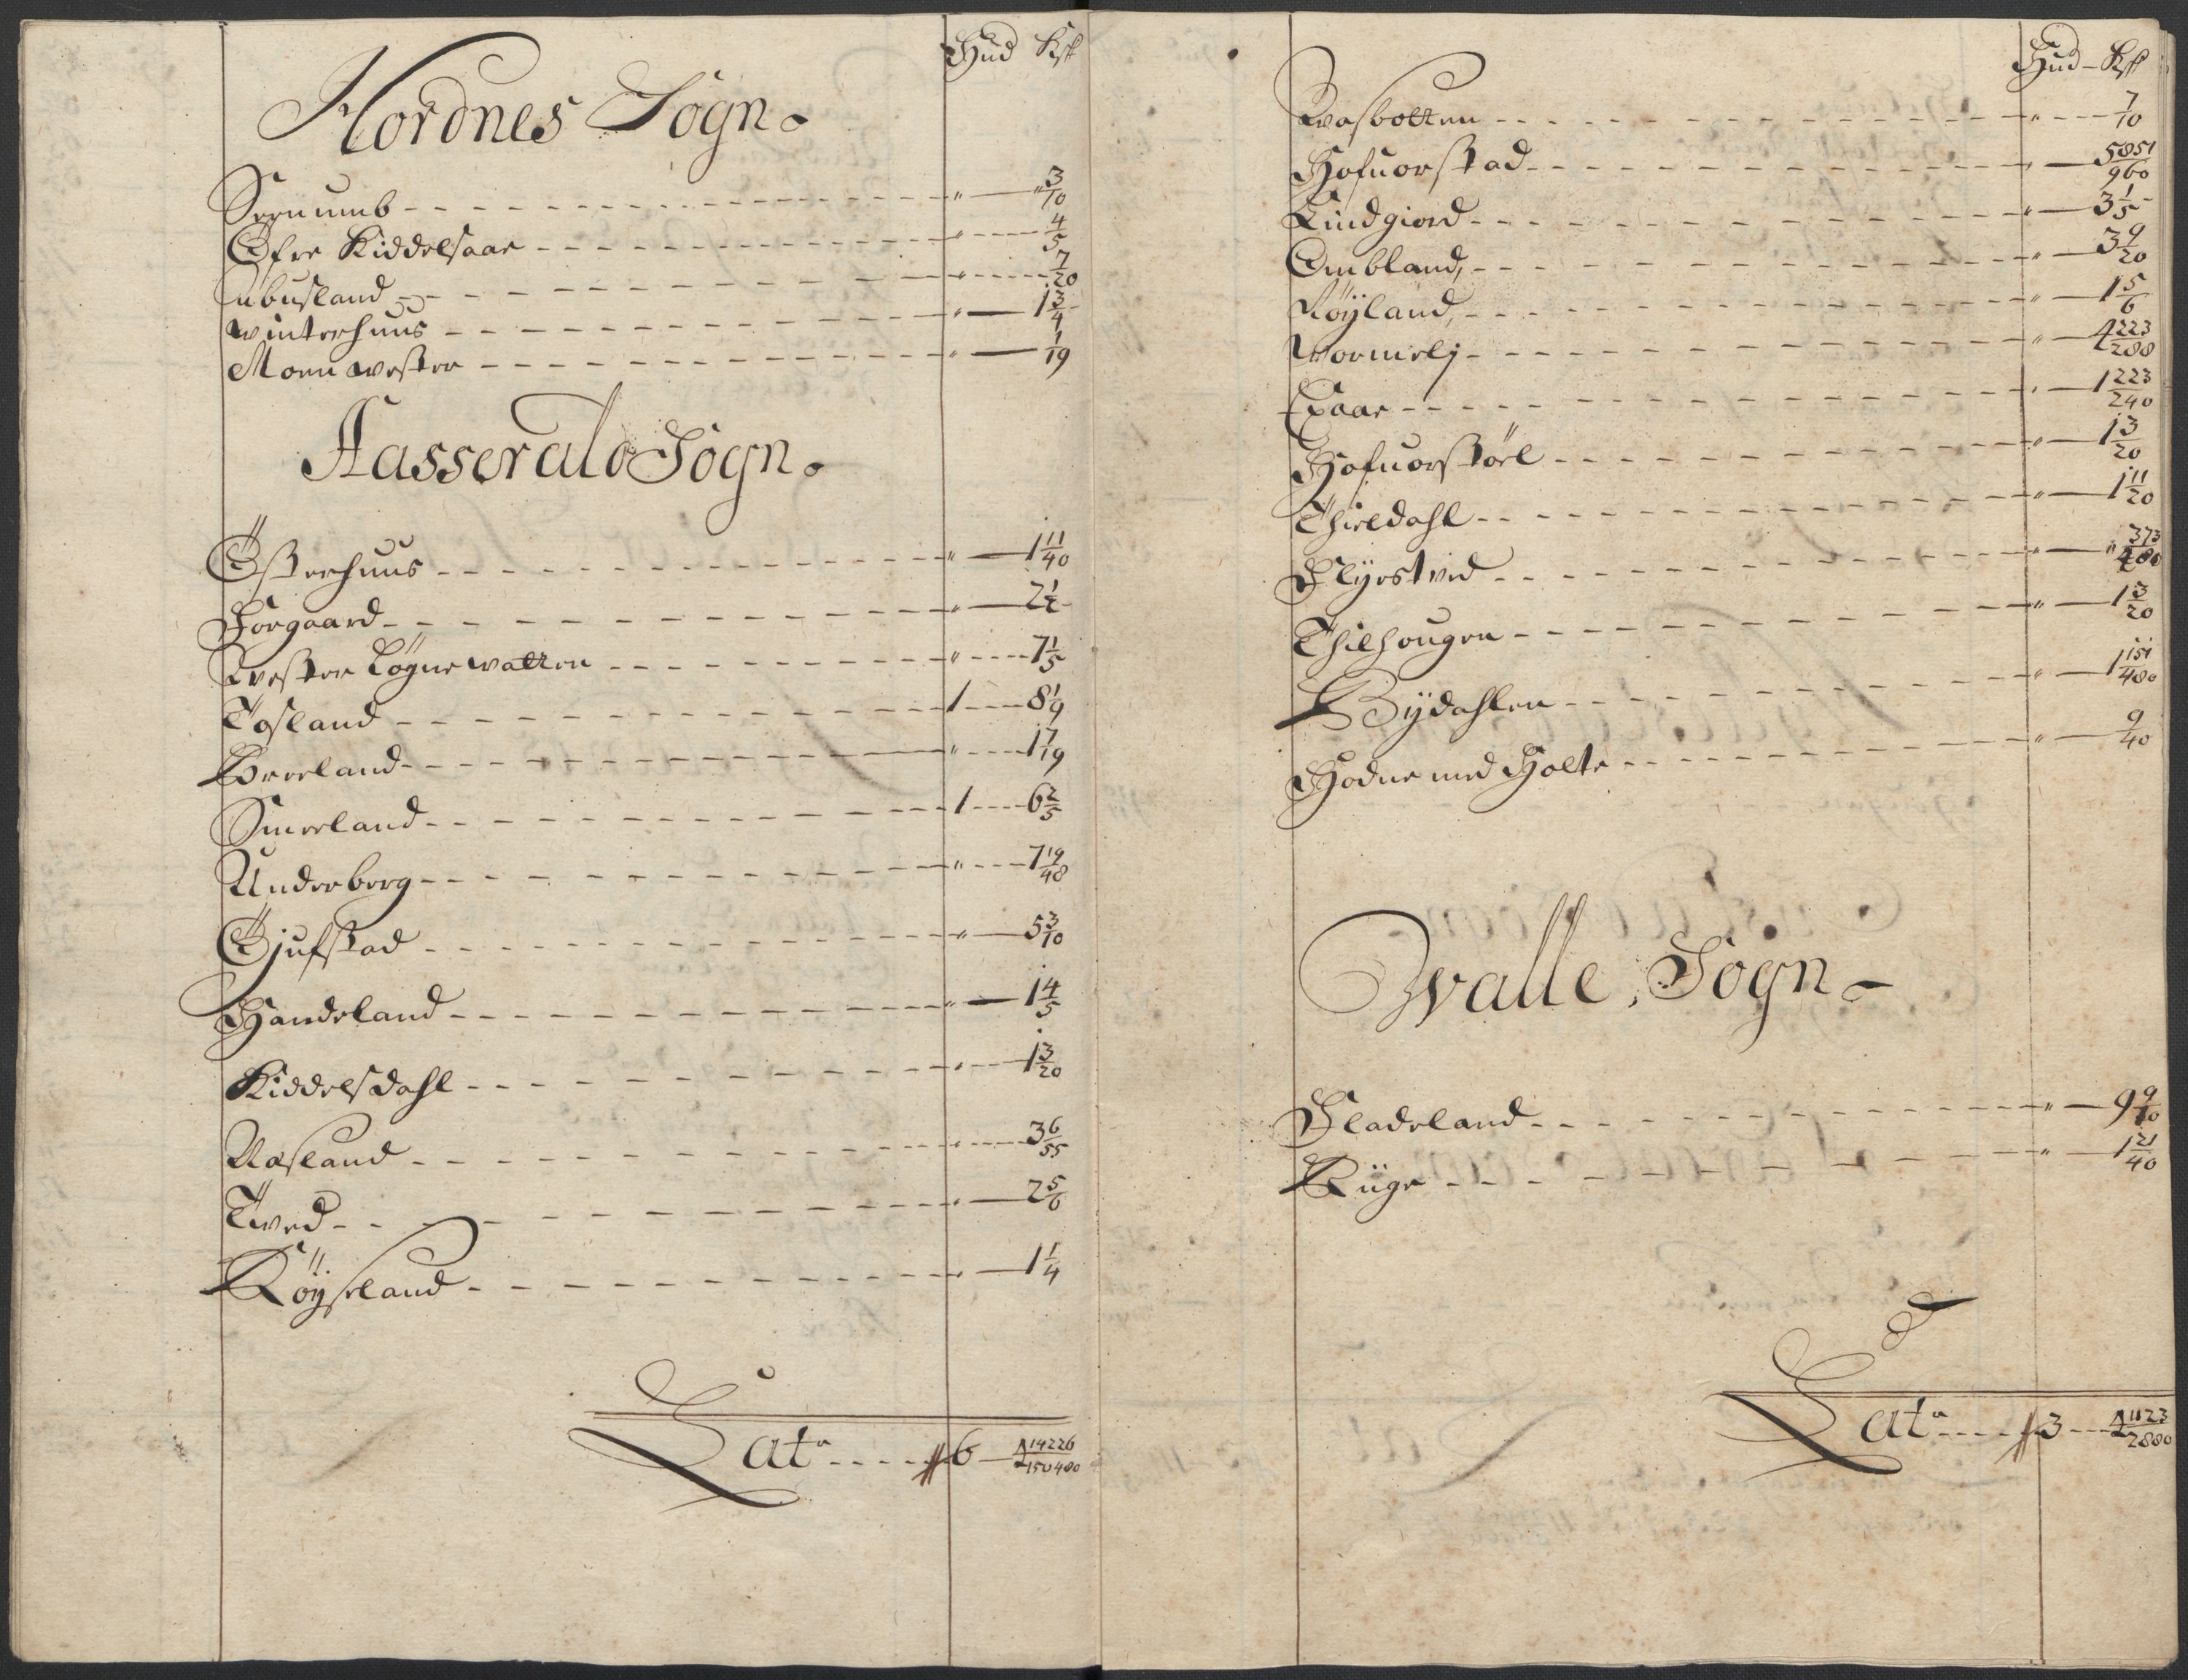 Hud Ksk
Hordnes Sogn.
Srenumb " " 3/10
Öfre Kiddelsaae " 4/5
ubusland " 7/20
winterhuus " 1 3/4
Moen wester " 1/19
Aasserals Sogn.
Österhuus " 1 11/40
Borgaard " 2 1/2
wester Løgnewatten " 7 1/5
Tosland 1 8 1/9
Breeland " 1 7/19
Smeeland 1 6 2/5
Underberg " 7 19/48
Öjufstad " 5 3/10
Handeland " 1 4/5
Kiddelsdahl " 1 3/20
Aasland " 3 6/55
Tved " 2 5/6
Röyseland " 1 1/4
Lat: 6 1 14226/150480
Hud Ksk
wasbotten " 7/10
Hofuorstad " 5 851/960
Lindgiord " 3 1/5
Ombland, " 3 9/20
Röyland, " 1 5/6
wormelj " 4 223/288
Epaae " 1 223/240
Hofuorstöel " 1 3/20
Thieldahl " 1 11/20
Flyestved " " 373/480
Thilhougen " 1 3/20
Bÿdahlen " 1 151/480
Hodne med Holte " 9/40
Walle, Sogn
Fladeland " 9 9/10
Rüge " 1 21/40
Lat: 3 1 1123/2880